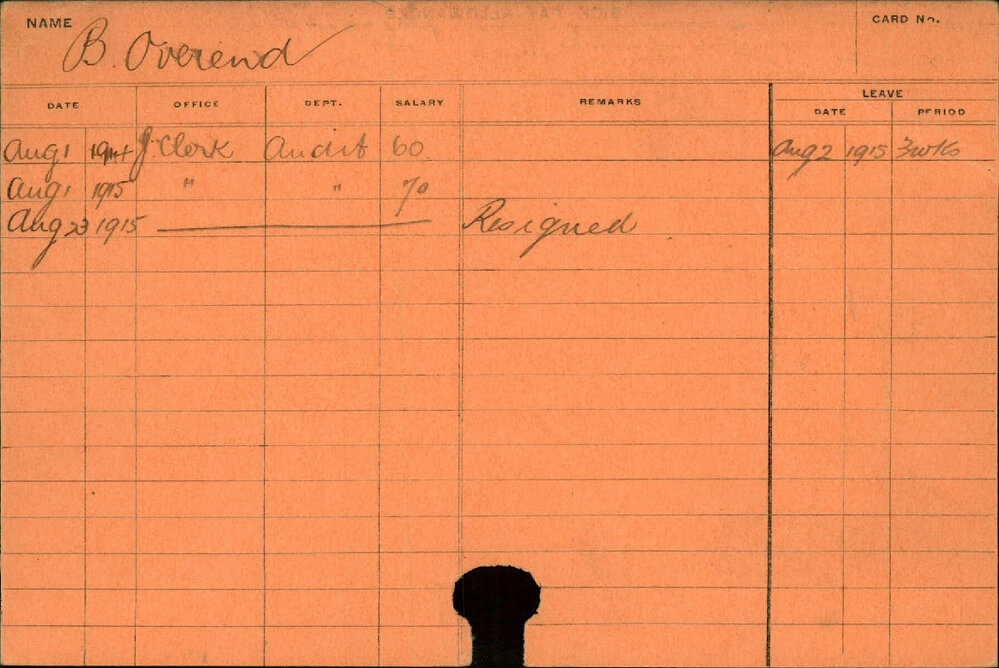 NAME B. Overend CARD No.
DATE OFFICE DEPT. SALARY REMARKS LEAVE
DATE PERIOD
Aug 1 1914 J. Clerk Audit 60 Aug 2 1915 3 wks
Aug 1 1915 " " 70
Aug 23 1915 Resigned